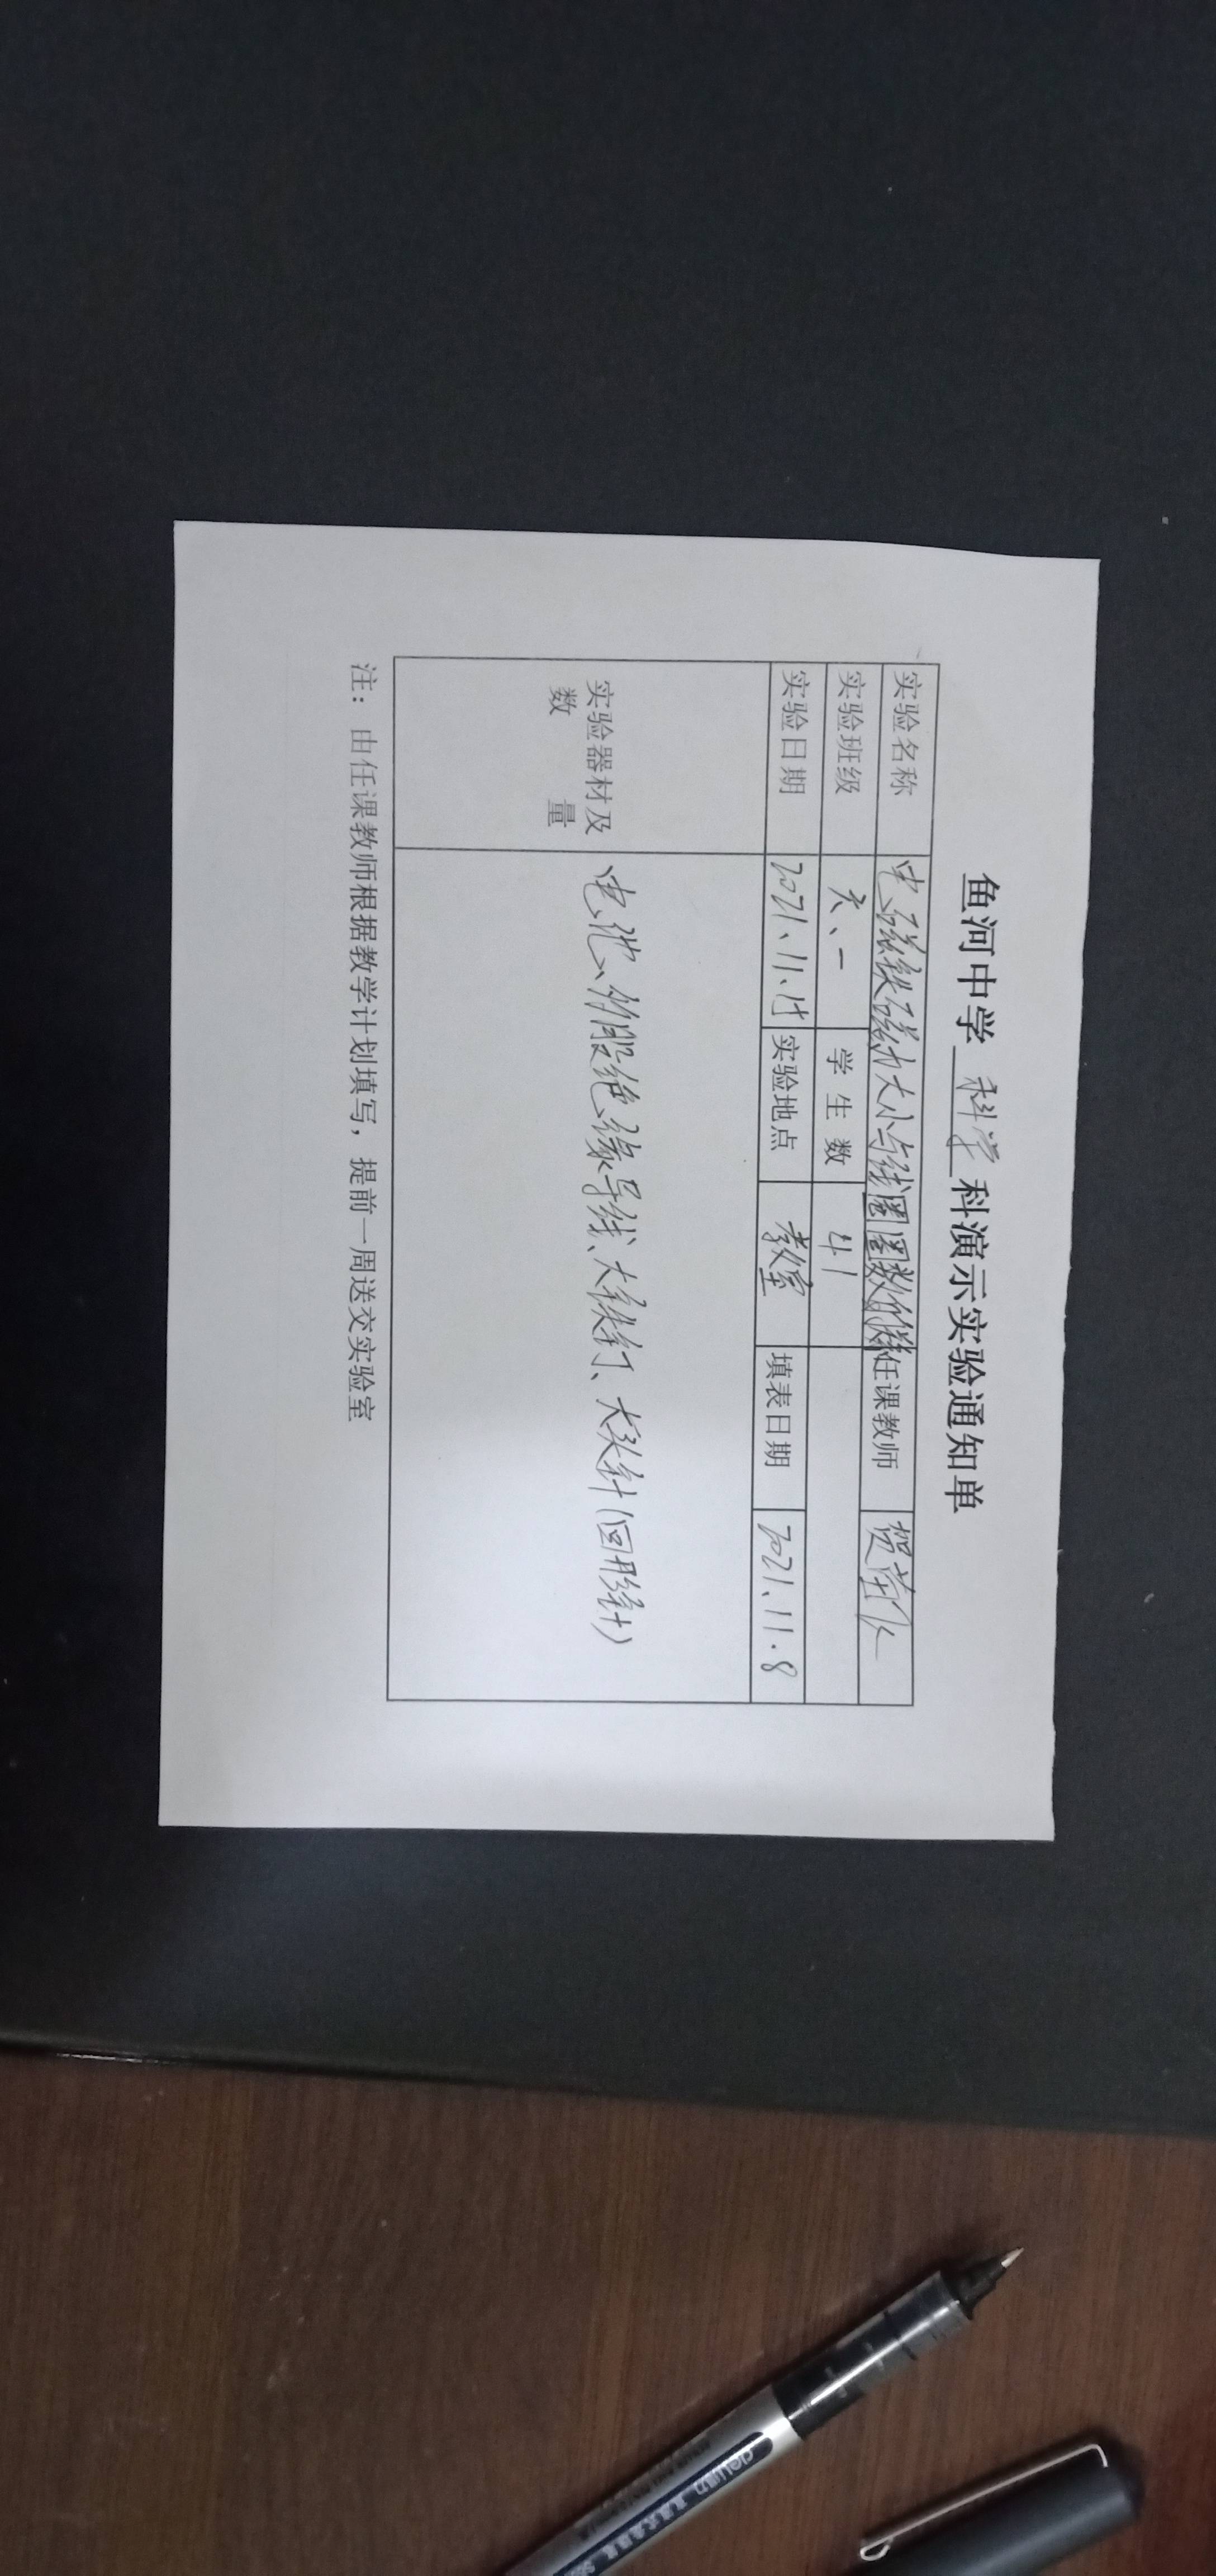 鱼河中学 科学 科演示实验通知单
实验名称 电磁铁磁力大小与线圈圈数的 任课教师 贺
实验班级 六、一 学生数 41
实验日期 2021.11.15 实验地点 教室 填表日期 2021.11.8
实验器材及
数 量
电池、 绝缘导线、大铁钉、大头针(回形针)
注：由任课教师根据教学计划填写，提前一周送交实验室
deli得力